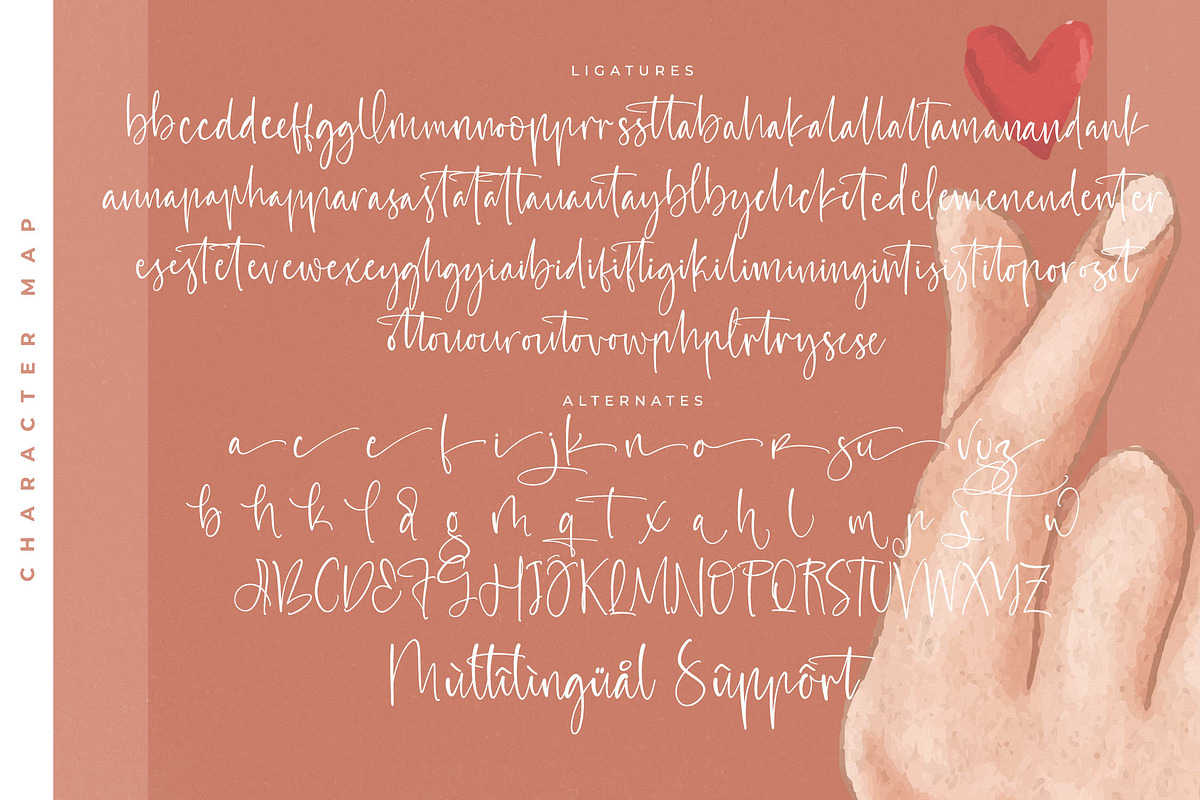 CHARACTER MAP
LIGATURES
bbccddeeffggllmmnnooppprrssttabahakalallaltamanandank
annapaphapparasastatattauautayblbychckctedelemenendenter
esestetevewexeyghgyiaibidififtigikiliminingintisistitoporosot
ottououroutovowphplrtrryscse
ALTERNATES
a c e f i j k n o r s u v y z
b h k l d g m q t x a h l m p s t w
ABCDEFGHIJKLMNOPQRSTUVWXYZ
Mùltîlìngüål Sûppôrt